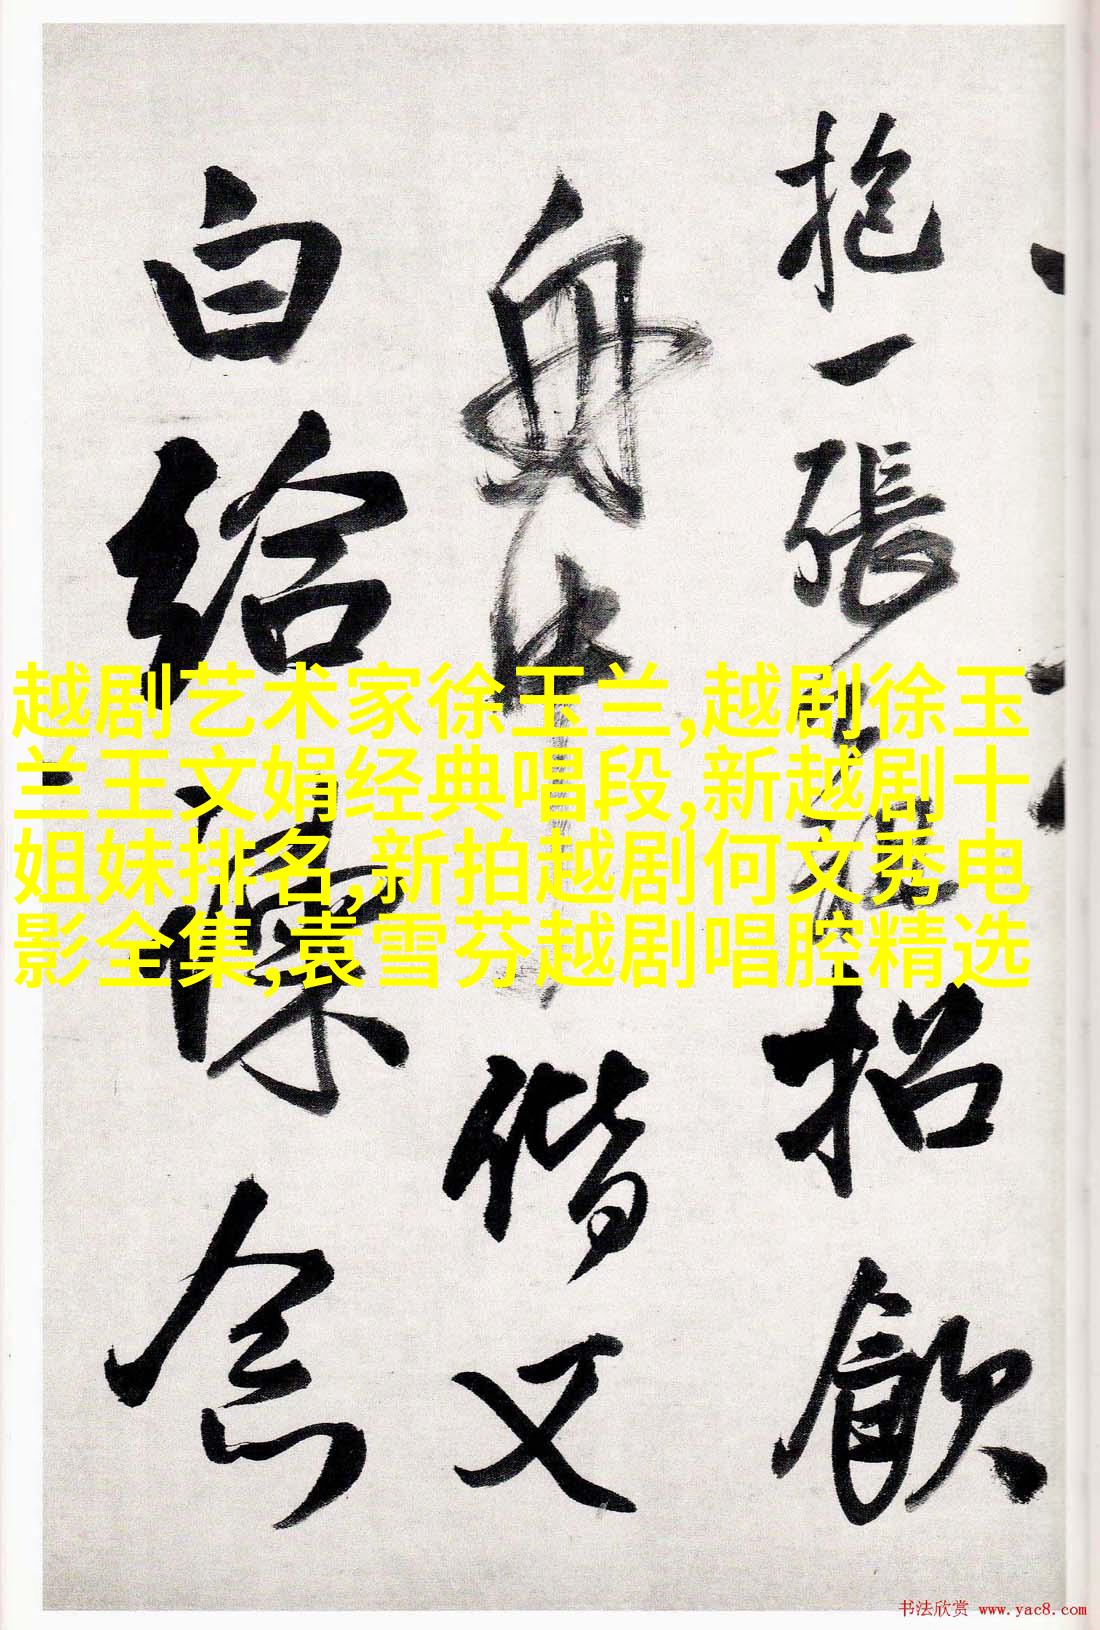 抱一張
招飲
舟中
偕又
白給諫
念
越剧艺术家徐玉兰,越剧徐玉
兰王文娟经典唱段,新越剧十
姐妹排名,新拍越剧何文秀电
影全集,袁雪芬越剧唱腔精选
书法欣赏 www.yac8.com